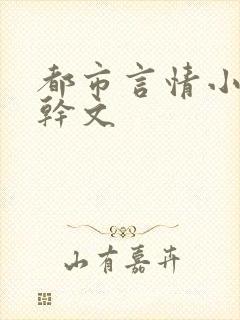 都市言情小
幹文
山有嘉卉